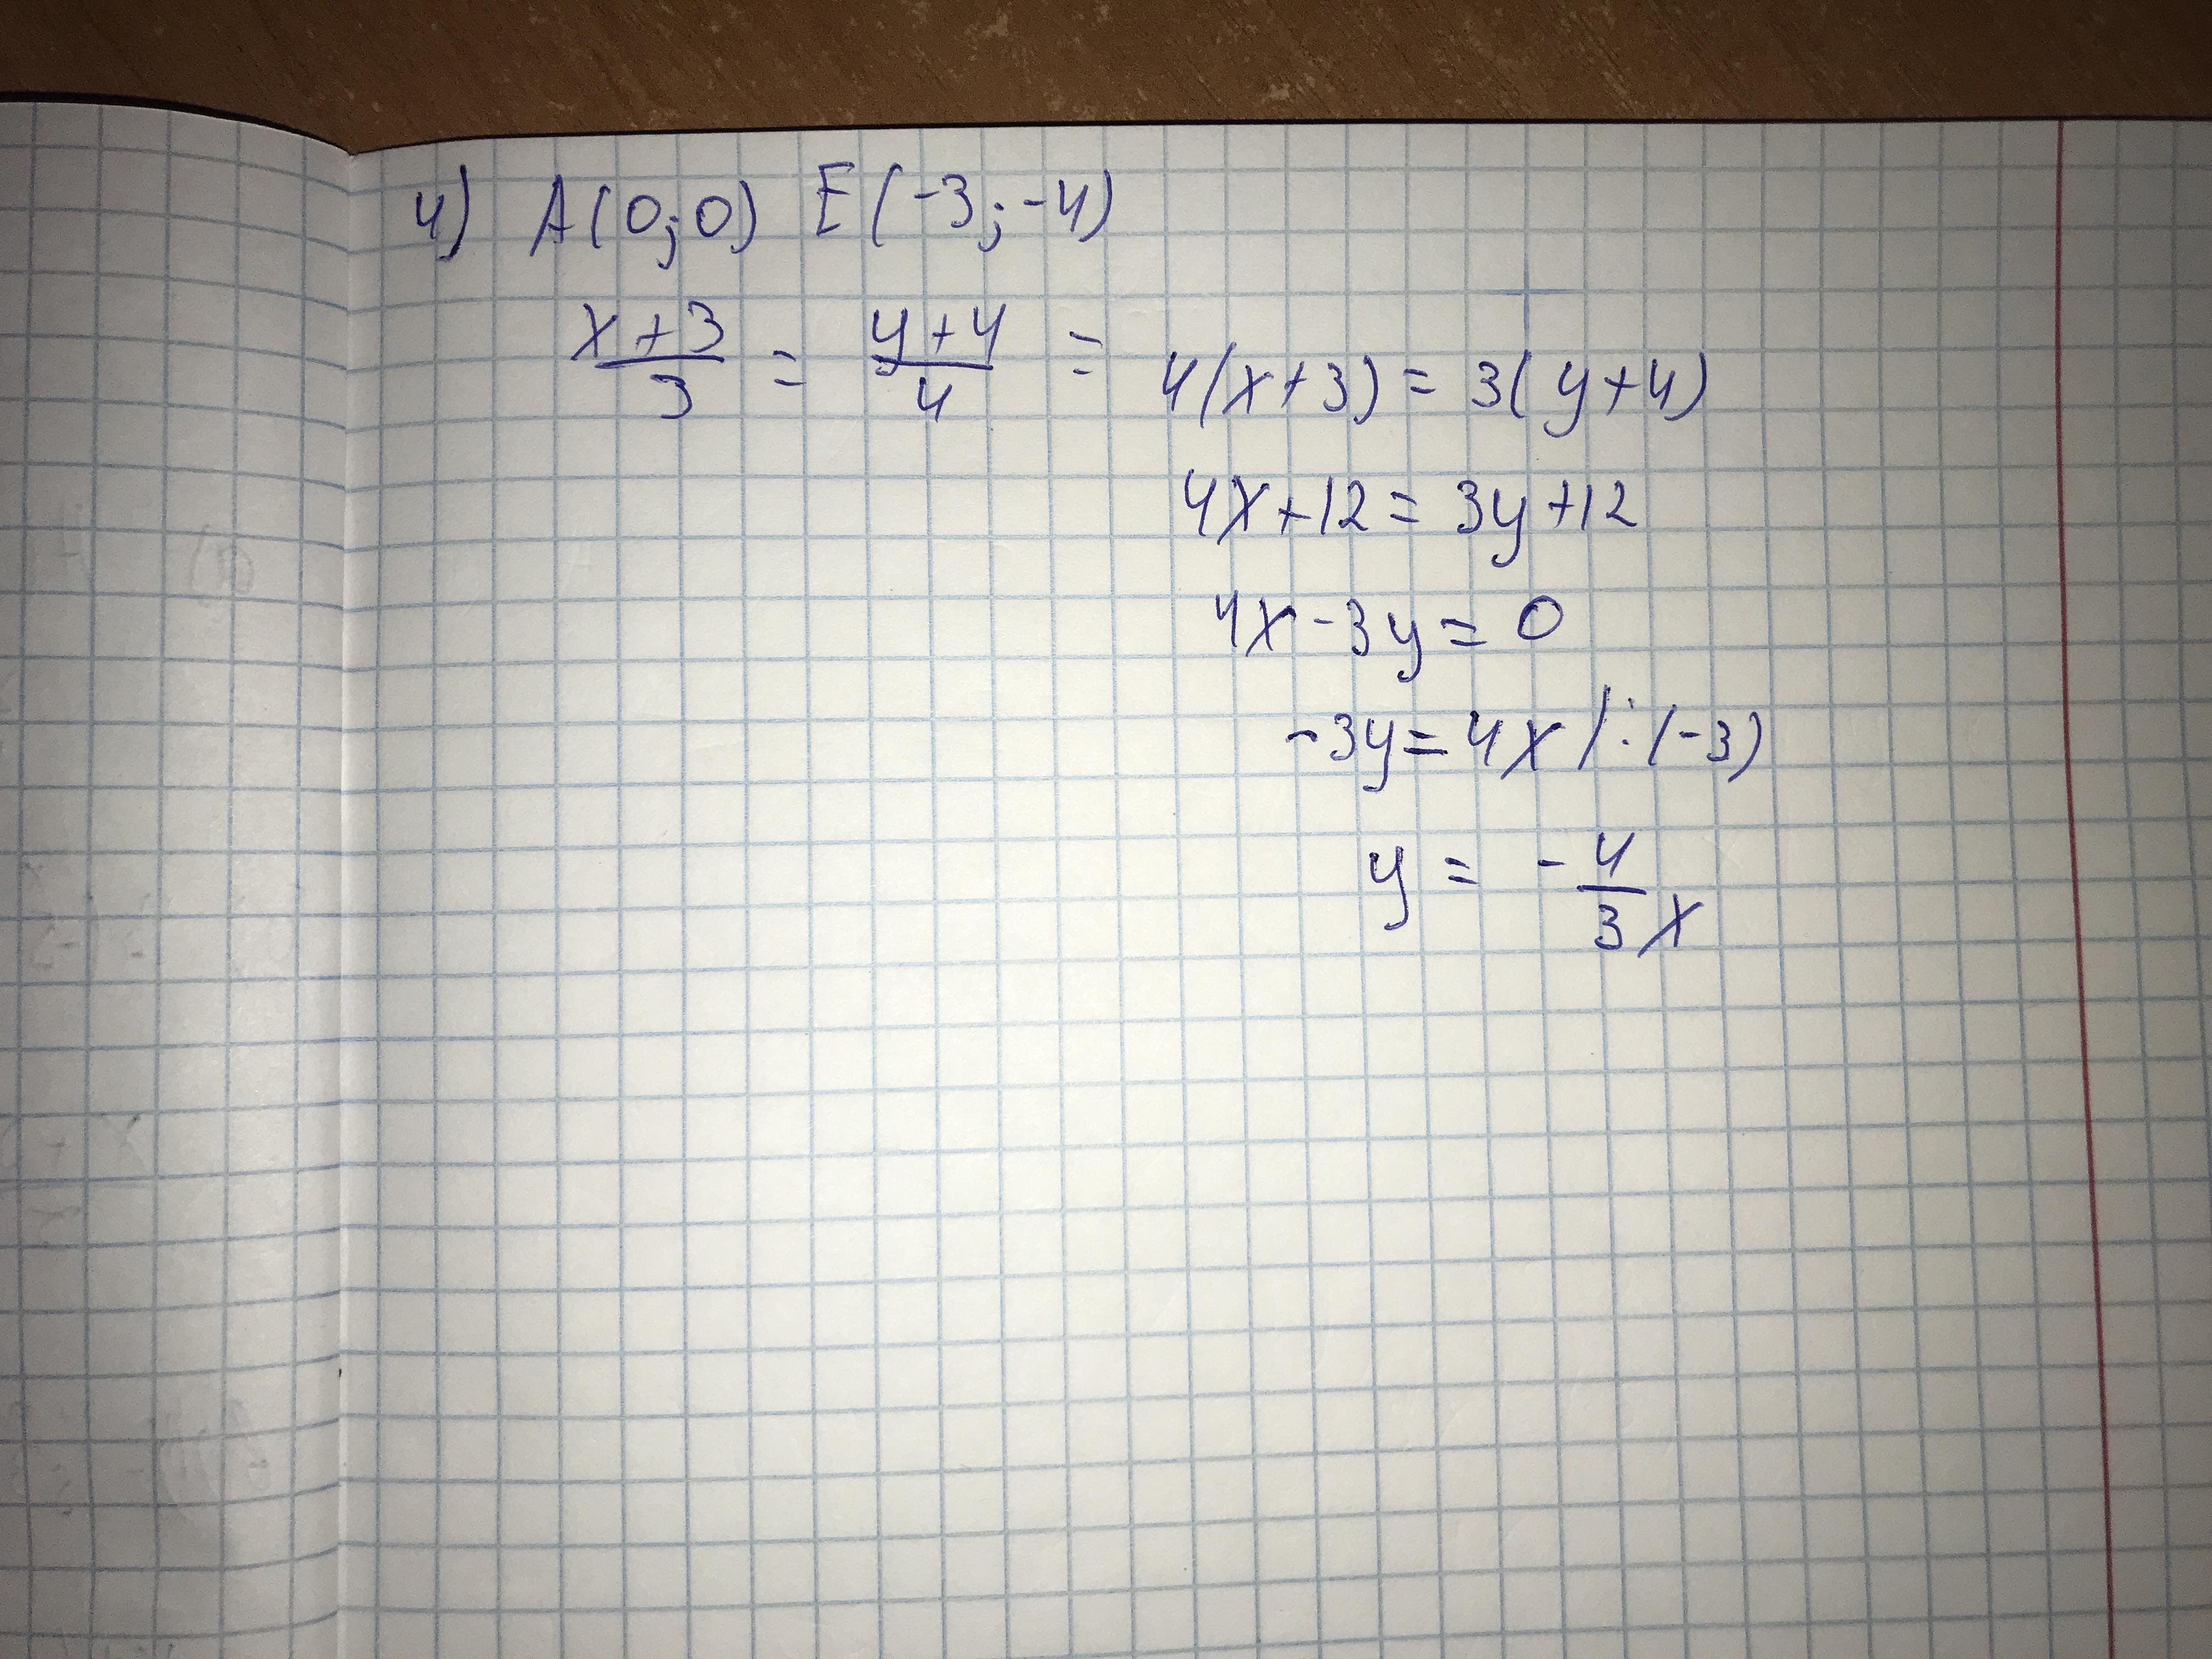 4) A(0;0) E(-3;-4)
(x+3)/3 = (y+4)/4 = 4(x+3) = 3(y+4)
4x+12 = 3y+12
4x-3y = 0
-3y = 4x |:(-3)
y = -4/3 x